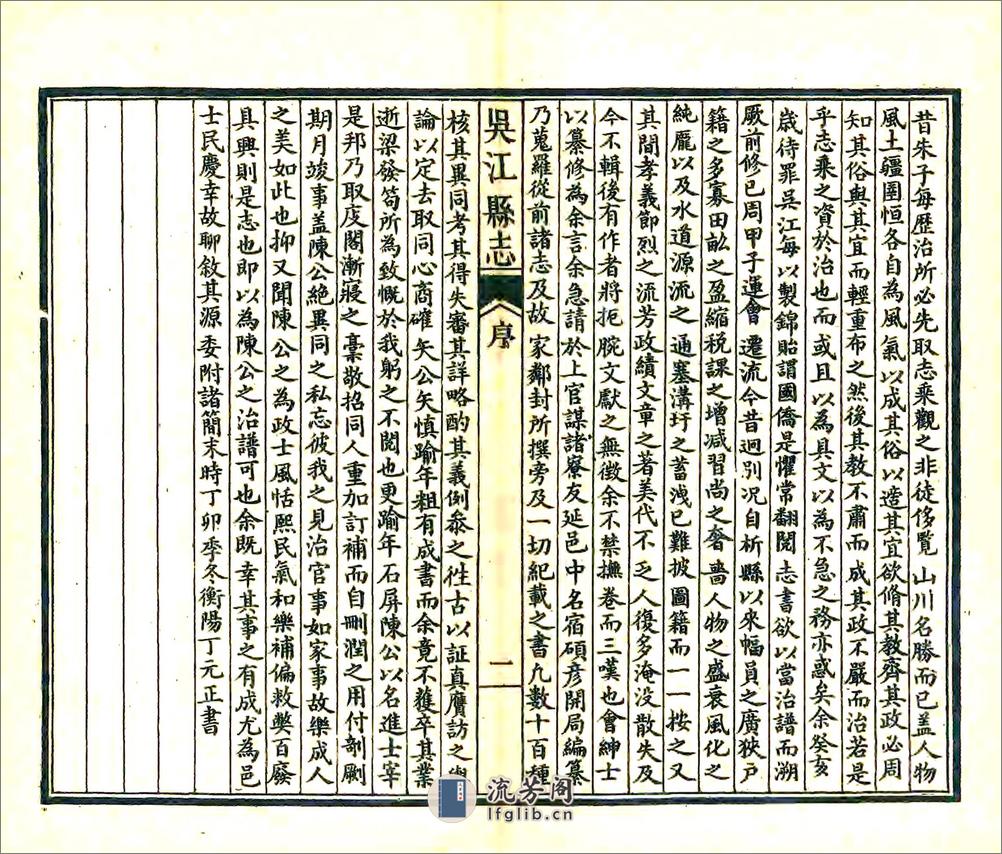 昔朱子每歷治所必先取志乘觀之非徒侈覽山川名勝而已盖人物
風土疆圉恒各自為風氣以成其俗以適其宜欲脩其教齊其政必周
知其俗與其宜而輕重布之然後其教不肅而成其政不嚴而治若是
乎志乘之資於治也而或且以為具文以為不急之務亦惑矣余癸亥
歲待罪吳江每以製錦貽謂國僑是懼常翻閱志書欲以當治譜而溯
厥前修已周甲子運會遷流今昔迥別况自析縣以來幅員之廣狹戶
籍之多寡田畝之盈縮税課之增減習尚之奢嗇人物之盛衰風化之
純龐以及水道源流之通塞溝圩之蓄洩已難披圖籍而一一按之又
其間孝義節烈之流芳政績文章之著美代不乏人復多淹没散失及
今不輯後有作者將扼腕文獻之無徵余不禁撫卷而三嘆也會紳士
以纂修為余言余急請於上官謀諸寮友延邑中名宿碩彦開局編纂
乃蒐羅從前諸志及故家鄰封所撰旁及一切紀載之書凡數十百種
吳江縣志
序
一
核其異同考其得失審其詳略酌其義例叅之徃古以証真贋訪之輿
論以定去取同心商確矢公矢慎踰年粗有成書而余竟不獲卒其業
逝梁發笱所為致慨於我躬之不閱也更踰年石屏陳公以名進士宰
是邦乃取庋閣漸寢之藁敬招同人重加訂補而自刪潤之用付剞劂
期月竣事盖陳公絶異同之私忘彼我之見治官事如家事故樂成人
之美如此也抑又聞陳公之為政士風恬熙民氣和樂補偏救獘百廢
具興則是志也即以為陳公之治譜可也余既幸其事之有成尤為邑
士民慶幸故聊敘其源委附諸簡末時丁卯季冬衡陽丁元正書
流芳阁
lfglib.cn